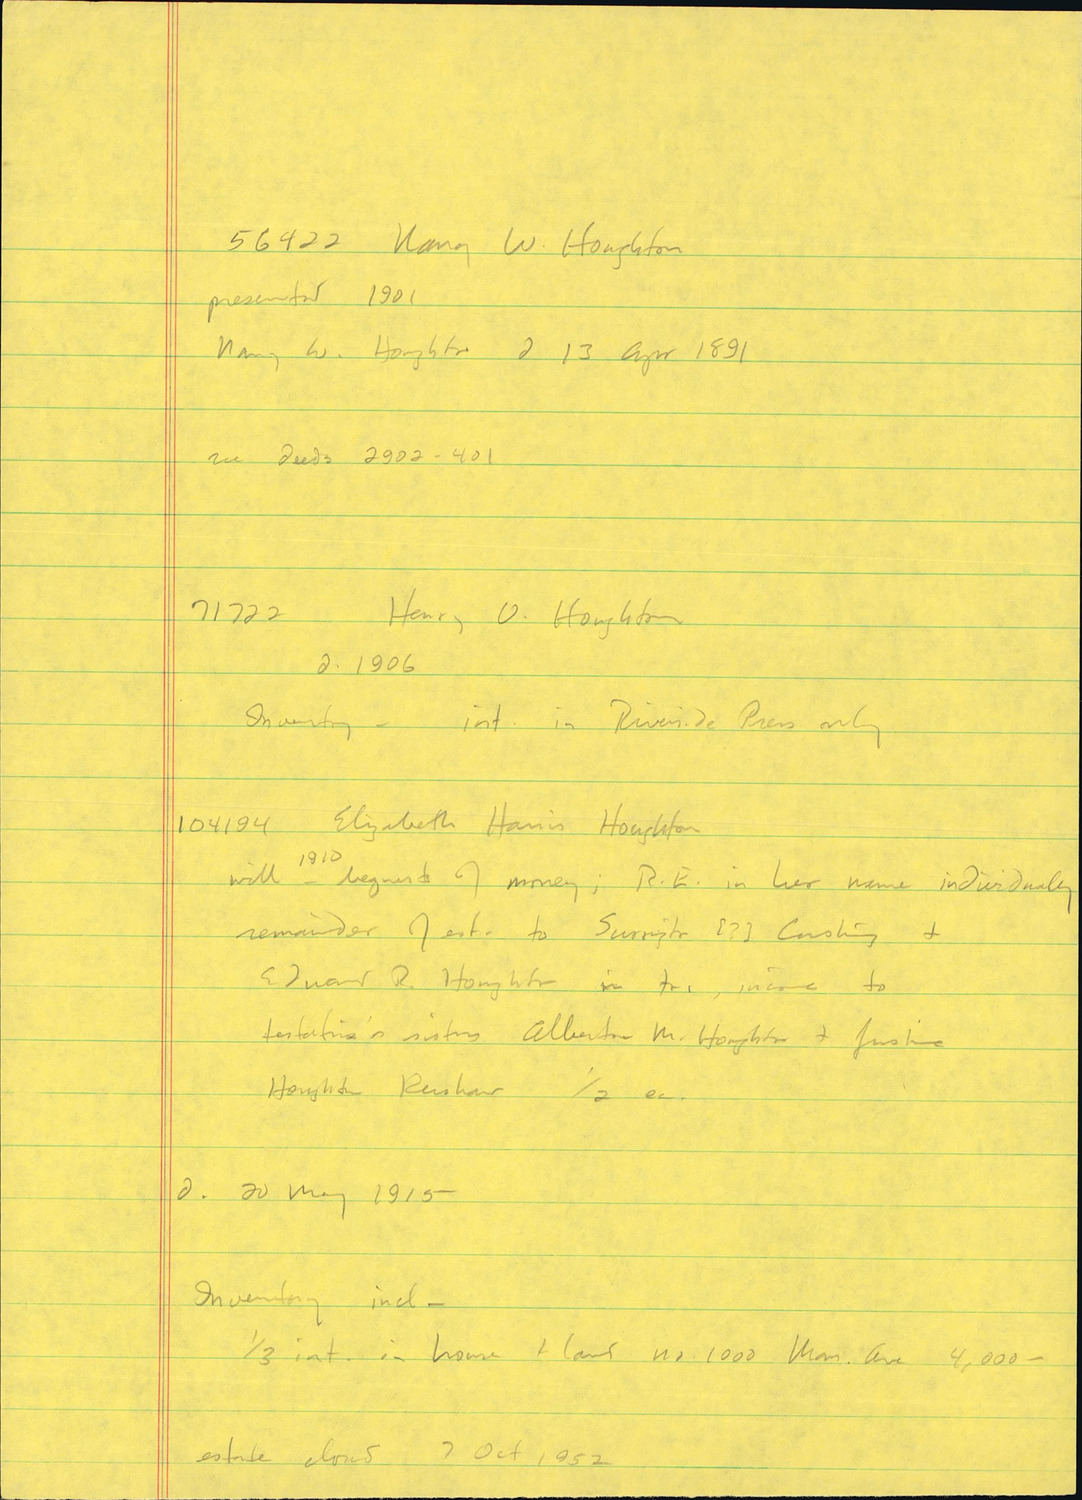 56422 Nancy W. Houghton
presented 1901
Nancy W. Houghton d 13 Apr 1891
see deeds 2902-401
71722 Henry O. Houghton
d. 1906
Inventory - int. in Riverside Press only
104194 Elizabeth Harris Houghton
will 1910 - bequests of money; R.E. in her name individually
remainder of est. to [?] Cushing +
Edward R. Houghton in tr., income to
testatrix's sisters Alberta M. Houghton + Justine
Houghton Kershaw 1/2 ea.
d. 20 May 1915
Inventory incl -
1/3 int. in house + land no. 1000 Mass. Ave 4,000-
estate closed 7 Oct 1952